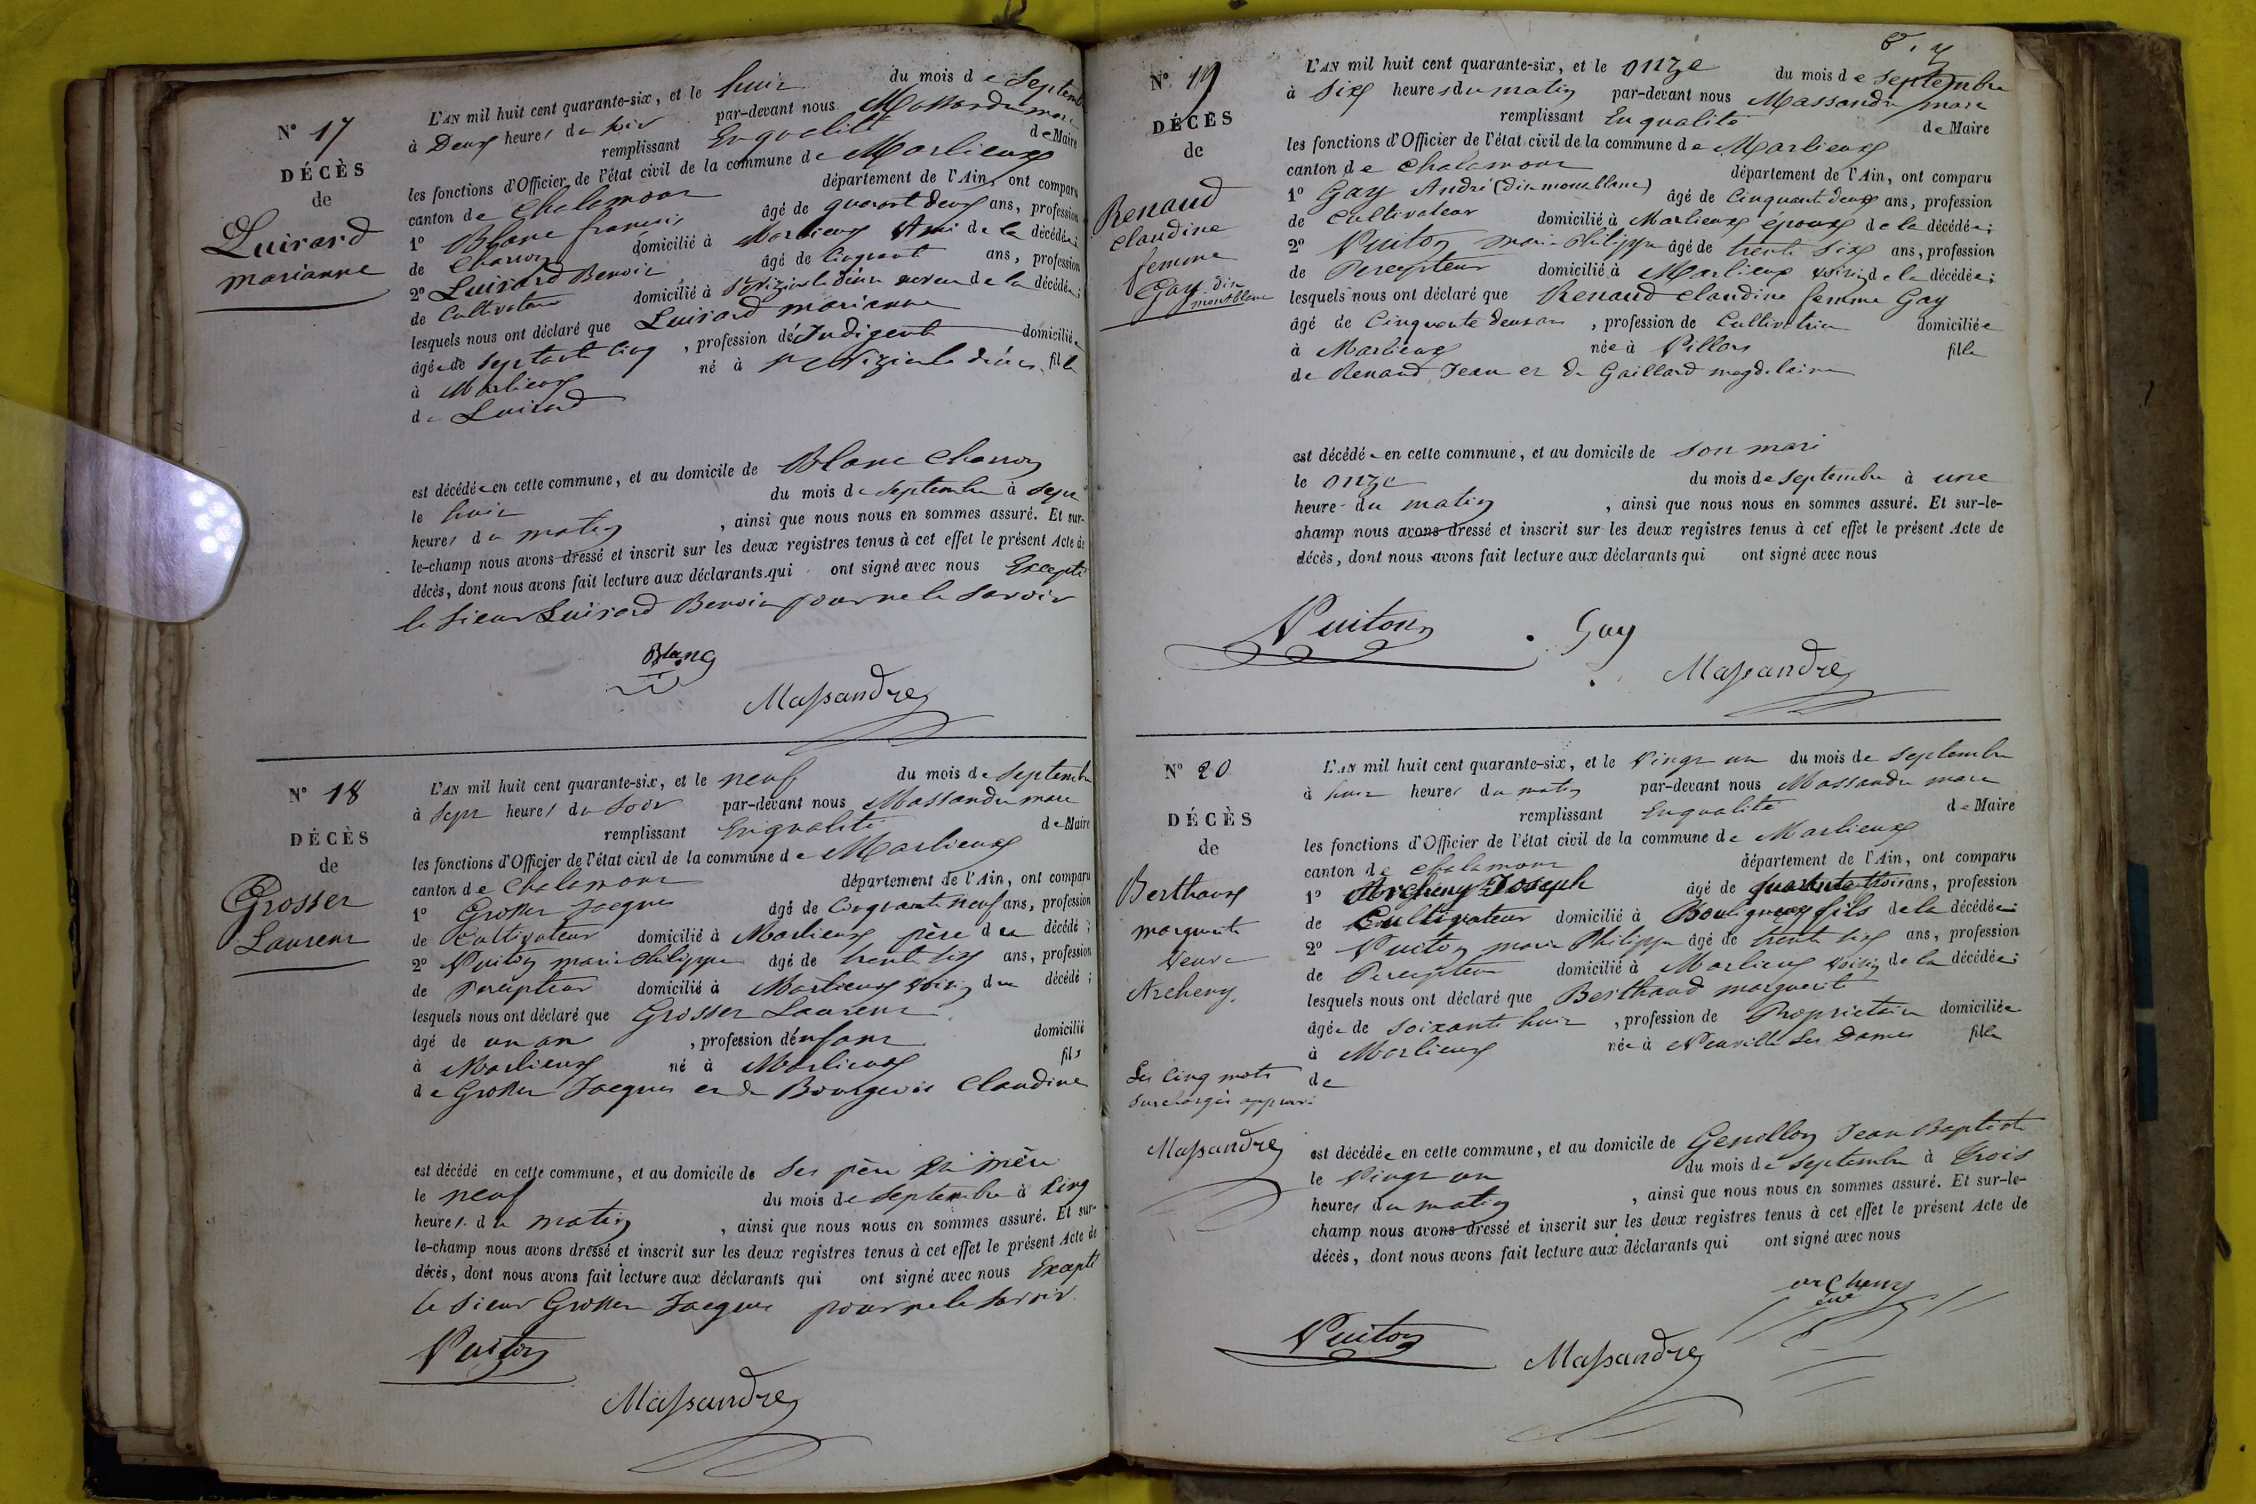 N° 17
DÉCÈS
de
Luirard
marianne
L'AN mil huit cent quarante-six, et le huit du mois de Septembre
à Deux heures du soir par-devant nous Massandre marc
remplissant En qualité de Maire
les fonctions d'Officier de l'état civil de la commune de Marlieux
canton de Chalamont département de l'Ain, ont comparu
1° Blanc francois âgé de quarant deux ans, profession
de Charron domicilié à Marlieux Ami de la décédée;
2° Luirard Benoit âgé de Cinquant ans, profession
de Cultivateur domicilié à St Nizier le désert neveu de la décédée;
lesquels nous ont déclaré que Luirard marianne
âgée de septante cinq, profession d'Indigente domiciliée
à Marlieux né à St Nizier le désert, fille
de Luirard
est décédée en cette commune, et au domicile de Blanc Charron
le huit du mois de Septembre à sept
heures du matin, ainsi que nous nous en sommes assuré. Et sur-
le-champ nous avons dressé et inscrit sur les deux registres tenus à cet effet le présent Acte de
décès, dont nous avons fait lecture aux déclarants qui ont signé avec nous Excepté
le sieur Luirard Benoit pour ne le savoir
Blanc
Massandre
N° 18
DÉCÈS
de
Grosser
Laurent
L'AN mil huit cent quarante-six, et le neuf du mois de Septembre
à Sept heures du soir par-devant nous Massandre marc
remplissant En qualité de Maire
les fonctions d'Officier de l'état civil de la commune de Marlieux
canton de Chalamont département de l'Ain, ont comparu
1° Grosser Jacques âgé de Cinquante neuf ans, profession
de Cultivateur domicilié à Marlieux père du décédé;
2° Vuiton marie Philippe âgé de trente six ans, profession
de Percepteur domicilié à Marlieux voisin du décédé;
lesquels nous ont déclaré que Grosser Laurent
âgé de un an, profession d'enfant domicilié
à Marlieux né à Marlieux fils
de Grosser Jacques et de Bourgeois Claudine
est décédé en cette commune, et au domicile de Ses père et mère
le neuf du mois de Septembre à Cinq
heures du matin, ainsi que nous nous en sommes assuré. Et sur-
le-champ nous avons dressé et inscrit sur les deux registres tenus à cet effet le présent Acte de
décès, dont nous avons fait lecture aux déclarants qui ont signé avec nous Excepté
le Sieur Grosser Jacques pour ne le savoir
Vuiton
Massandre
N° 19
DÉCÈS
de
Renaud
claudine
femme
Gay dit
montblanc
L'AN mil huit cent quarante-six, et le onze du mois de septembre
à Six heures du matin par-devant nous Massandre marc
remplissant En qualité de Maire
les fonctions d'Officier de l'état civil de la commune de Marlieux
canton de Chalamont département de l'Ain, ont comparu
1° Gay André (dit montblanc) âgé de Cinquant deux ans, profession
de Cultivateur domicilié à Marlieux époux de la décédée;
2° Vuiton marie Philippe âgé de trente six ans, profession
de Percepteur domicilié à Marlieux voisin de la décédée;
lesquels nous ont déclaré que Renaud Claudine femme Gay
âgé de Cinquante deux ans, profession de Cultivatrice domiciliée
à Marlieux née à Villars fille
de Renaud Jean et de Gaillard magdelaine
est décédée en cette commune, et au domicile de son mari
le onze du mois de septembre à une
heure du matin, ainsi que nous nous en sommes assuré. Et sur-le-
champ nous avons dressé et inscrit sur les deux registres tenus à cet effet le présent Acte de
décès, dont nous avons fait lecture aux déclarants qui ont signé avec nous
Vuiton Gay
Massandre
N° 20
DÉCÈS
de
Berthaux
marguerite
Veuve
Archeny
Les Cinq mots
surchargés approuvé
Massandre
L'AN mil huit cent quarante-six, et le Vingt un du mois de Septembre
à huit heures du matin par-devant nous Massandre marc
remplissant En qualité de Maire
les fonctions d'Officier de l'état civil de la commune de Marlieux
canton de Chalamont département de l'Ain, ont comparu
1° Archeny Joseph âgé de quarante trois ans, profession
de Cultivateur domicilié à Bouligneux fils de la décédée;
2° Vuiton marie Philippe âgé de trente six ans, profession
de Percepteur domicilié à Marlieux voisin de la décédée;
lesquels nous ont déclaré que Berthaud marguerite
âgée de soixante huit, profession de Propriétaire domiciliée
à Marlieux née à Neuville les Dames fille
de
est décédée en cette commune, et au domicile de Genillon Jean Baptiste
le Vingt un du mois de Septembre à Trois
heures du matin, ainsi que nous nous en sommes assuré. Et sur-le-
champ nous avons dressé et inscrit sur les deux registres tenus à cet effet le présent Acte de
décès, dont nous avons fait lecture aux déclarants qui ont signé avec nous
archeny
Vuiton Massandre